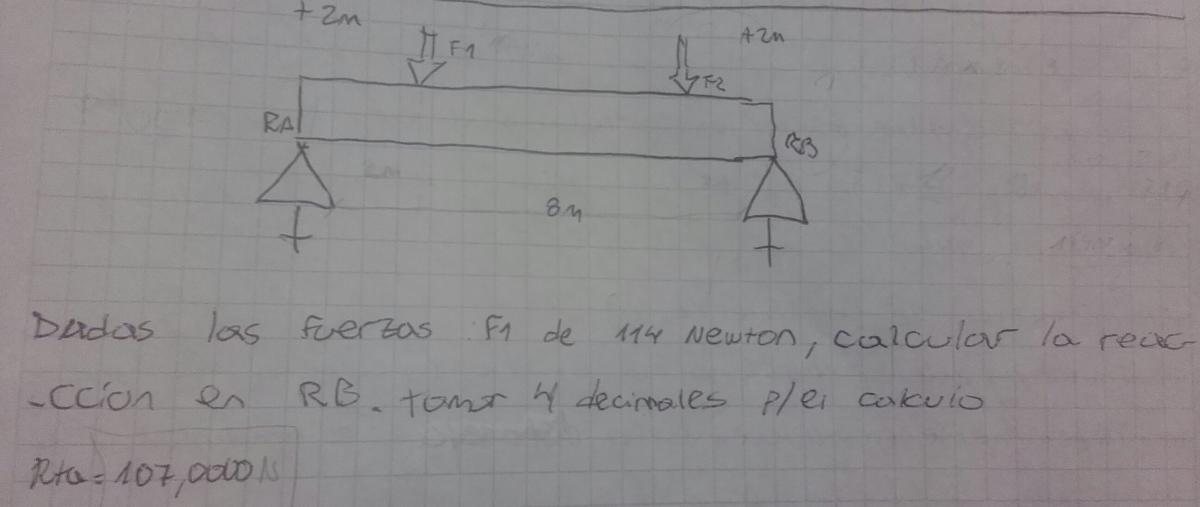 +2m
F1
F2
+2m
RA
RB
8m
Dadas las fuerzas F1 de 114 Newton, calcular la reac-
-ccion en RB. tomar 4 decimales p/el calculo
Rta=107,0000N